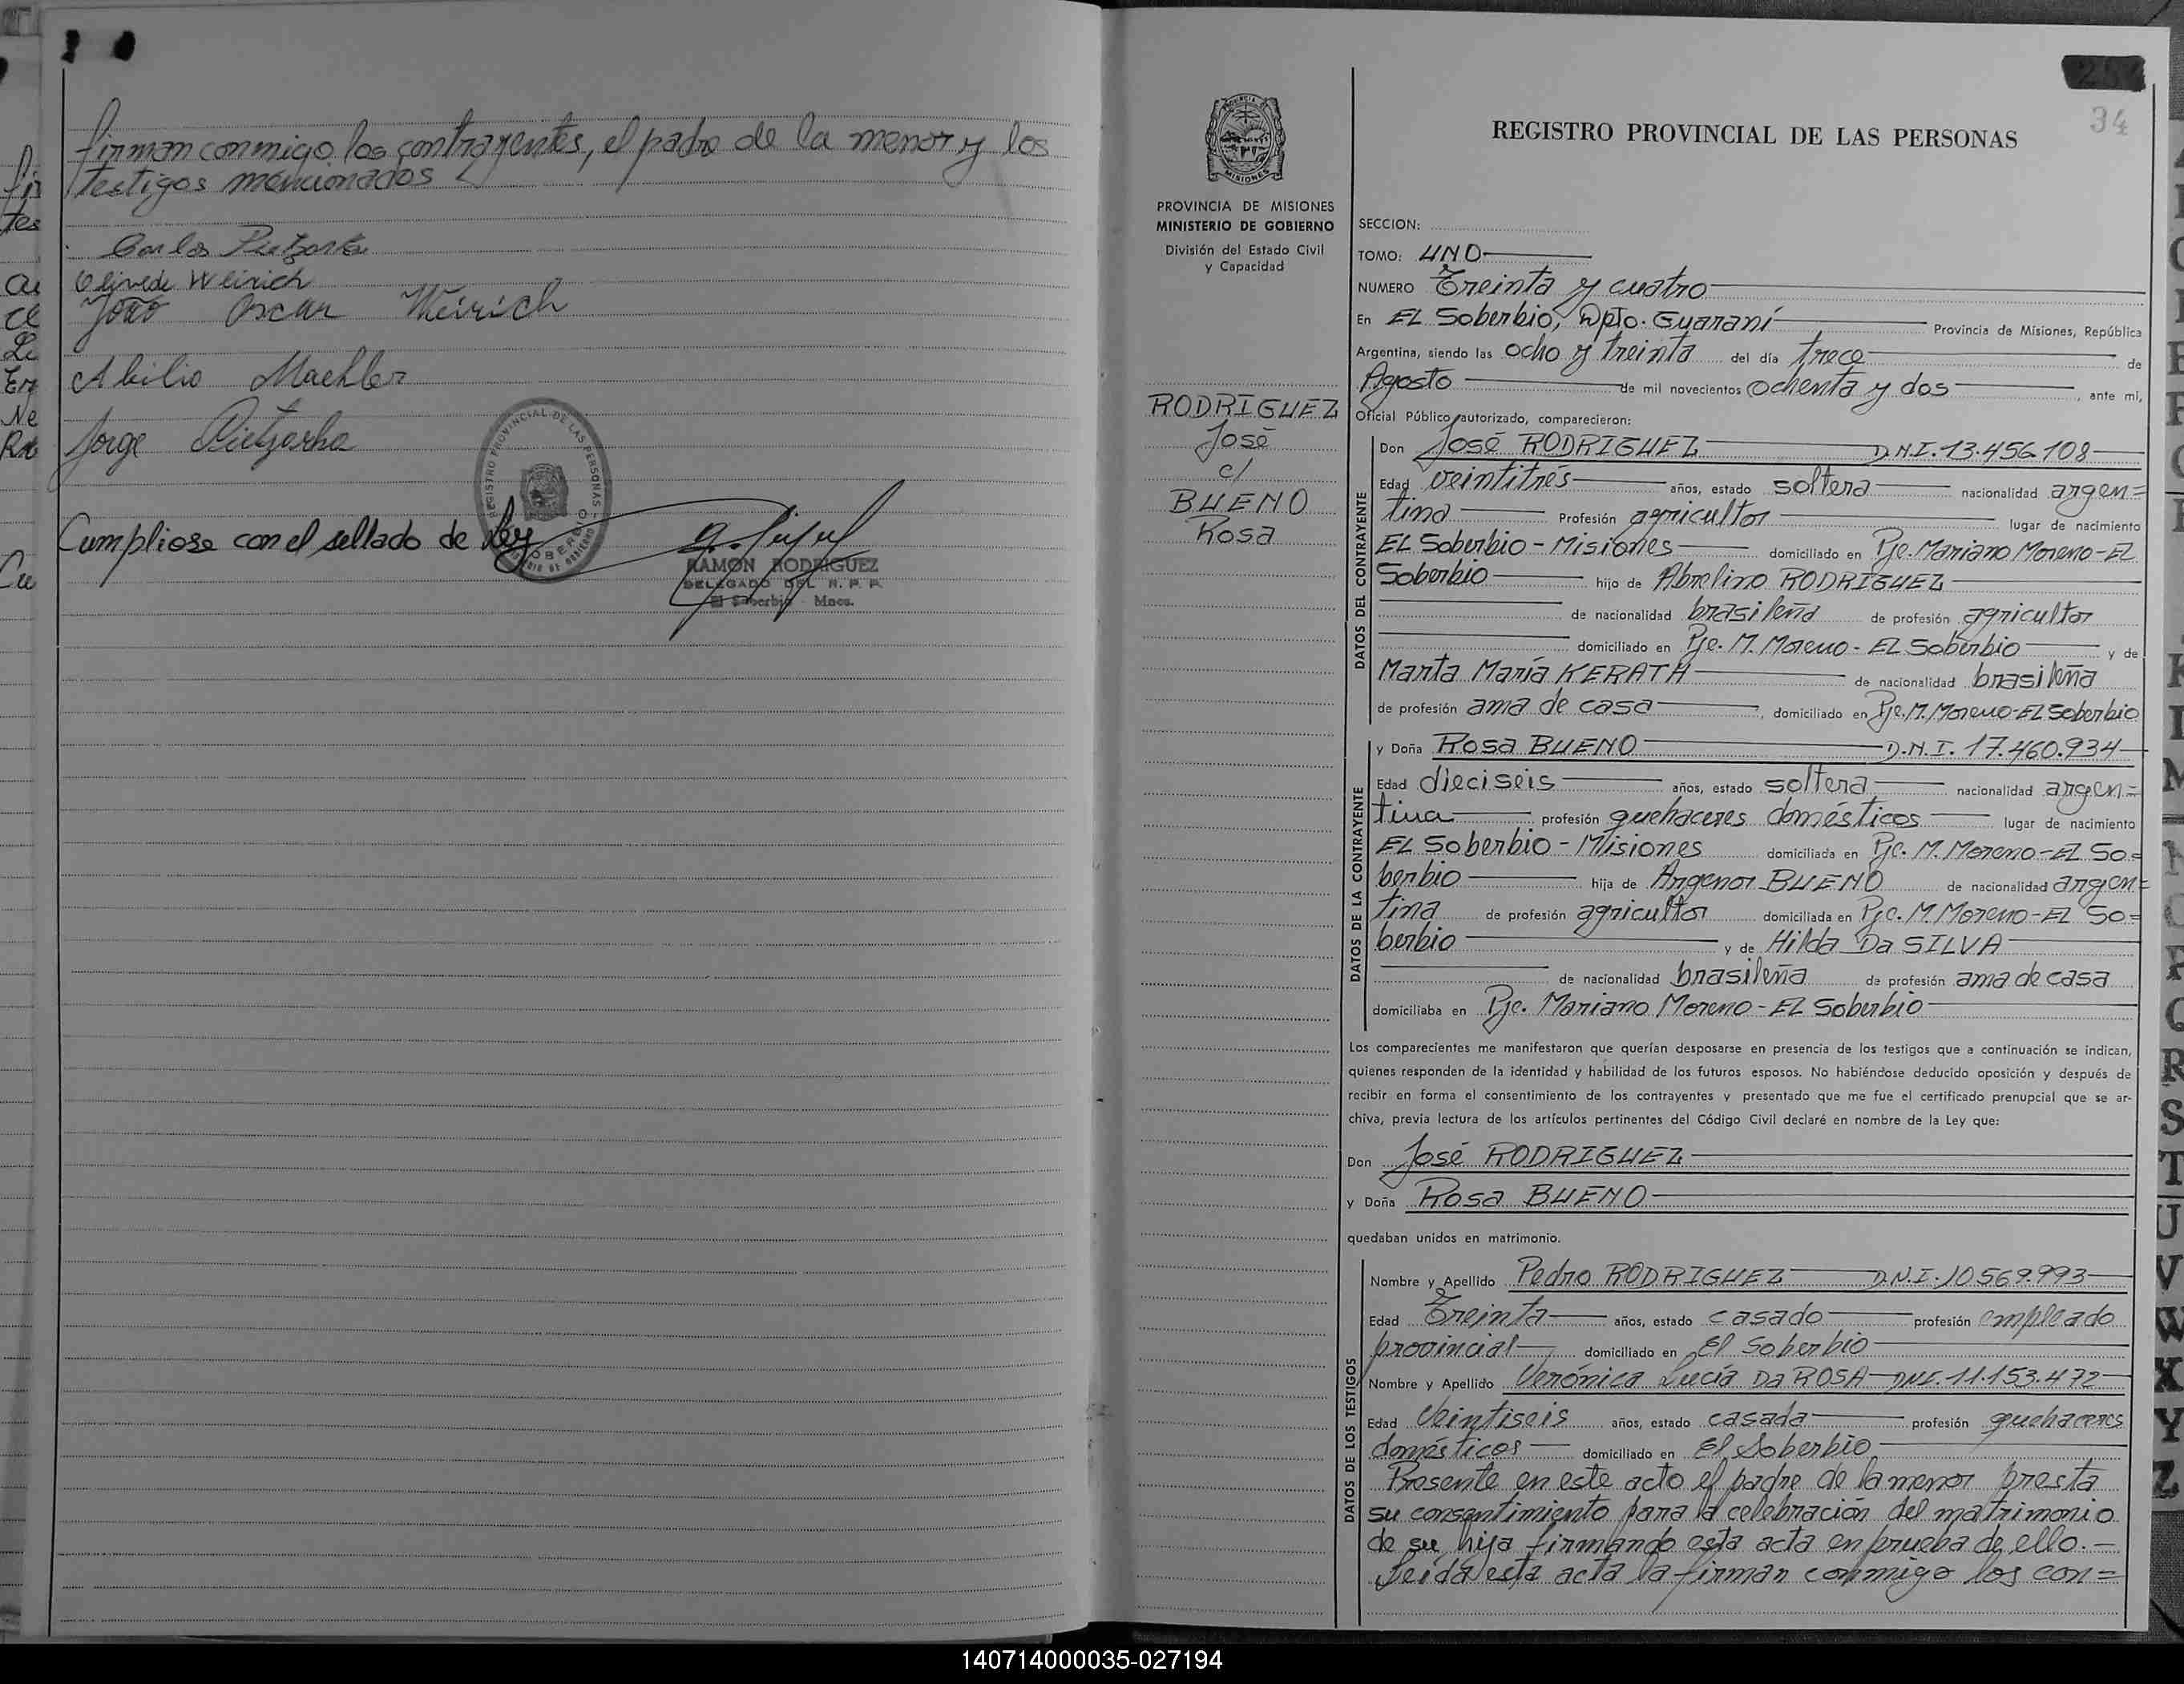 firman conmigo los contrayentes, el padre de la menor y los
testigos mencionados
Carlos
Weirich
João Oscar Weirich
Abilio Maehler
Jorge Pietzarka
REGISTRO PROVINCIAL DE LAS PERSONAS
Cumpliose con el sellado de ley
RAMON RODRIGUEZ
DELEGADO DEL R. P. P.
El Soberbio - Mnes.
PROVINCIA DE MISIONES
MINISTERIO DE GOBIERNO
División del Estado Civil
y Capacidad
RODRIGUEZ
José
c/
BUENO
Rosa
34
REGISTRO PROVINCIAL DE LAS PERSONAS
SECCION:
TOMO: UNO
NUMERO Treinta y cuatro
En EL Soberbio, Dpto. Guaraní Provincia de Misiones, República
Argentina, siendo las ocho y treinta del día trece de
Agosto de mil novecientos ochenta y dos, ante mí,
Oficial Público autorizado, comparecieron:
DATOS DEL CONTRAYENTE
Don José RODRIGUEZ D.N.I. 13.456.108
Edad veintitrés años, estado soltera nacionalidad argen=
tina Profesión agricultor lugar de nacimiento
EL Soberbio - Misiones domiciliado en Pje. Mariano Moreno - EL
Soberbio hijo de Abrelino RODRIGUEZ
de nacionalidad brasileña de profesión agricultor
domiciliado en Pje. M. Moreno - EL Soberbio y de
Marta María KERATH de nacionalidad brasileña
de profesión ama de casa, domiciliado en Pje. M. Moreno - EL Soberbio
DATOS DE LA CONTRAYENTE
y Doña Rosa BUENO D.N.I. 17.460.934
Edad dieciseis años, estado soltera nacionalidad argen=
tina profesión quehaceres domésticos lugar de nacimiento
EL Soberbio - Misiones domiciliada en Pje. M. Moreno - EL So=
berbio hija de Argenor BUENO de nacionalidad argen=
tina de profesión agricultor domiciliada en Pje. M. Moreno - EL So=
berbio y de Hilda Da SILVA
de nacionalidad brasileña de profesión ama de casa
domiciliaba en Pje. Mariano Moreno - EL Soberbio
Los comparecientes me manifestaron que querían desposarse en presencia de los testigos que a continuación se indican,
quienes responden de la identidad y habilidad de los futuros esposos. No habiéndose deducido oposición y después de
recibir en forma el consentimiento de los contrayentes y presentado que me fue el certificado prenupcial que se ar-
chiva, previa lectura de los artículos pertinentes del Código Civil declaré en nombre de la Ley que:
Don José RODRIGUEZ
y Doña Rosa BUENO
quedaban unidos en matrimonio.
DATOS DE LOS TESTIGOS
Nombre y Apellido Pedro RODRIGUEZ D.N.I. 10.569.993
Edad Treinta años, estado casado profesión empleado
provincial domiciliado en El Soberbio
Nombre y Apellido Verónica Lucía Da ROSA DNI. 11.153.472
Edad Veintiseis años, estado casada profesión quehaceres
domésticos domiciliado en El Soberbio
Presente en este acto el padre de la menor presta
su consentimiento para la celebración del matrimonio
de su hija firmando esta acta en prueba de ello. -
Leída esta acta la firman conmigo los con=
140714000035-027194